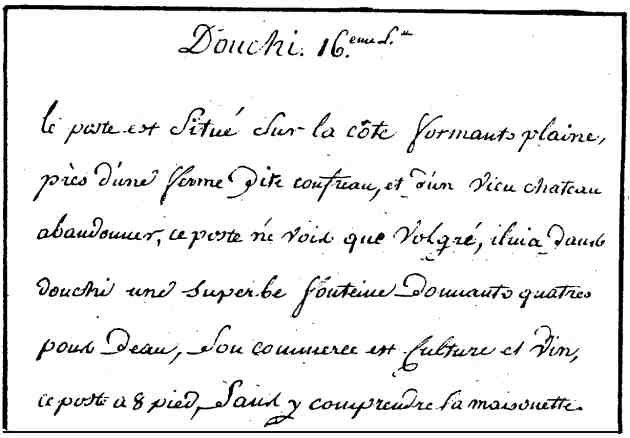 Douchi. 16.eme S.on
le poste est Situé Sur la côte formants plaine,
près d'une ferme Dite coufreau, et d'un vieu chateau
abandonner, ce poste né vois que Volgré, il nia dans
douchi une superbe fonteine Donnants quatres
pous Deau, Son commerce est Culture et Vin,
ce poste a 8 pied, Sans y comprendre la maisonette.